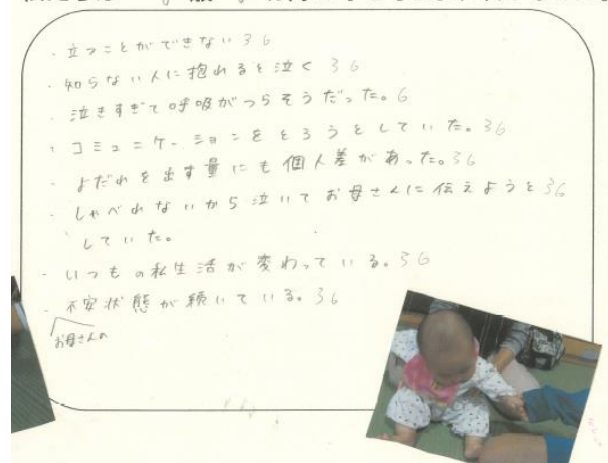 ・立つことができない 36
・知らない人に抱れると泣く 36
・泣きすぎて呼吸がつらそうだった。6
・コミュニケーションをとろうとしていた。36
・よだれを出す量にも個人差があった。36
・しゃべれないから泣いてお母さんに伝えようと36
していた。
・いつもの私生活が変わっている。36
・不安状態が続いている。36
お母さんの